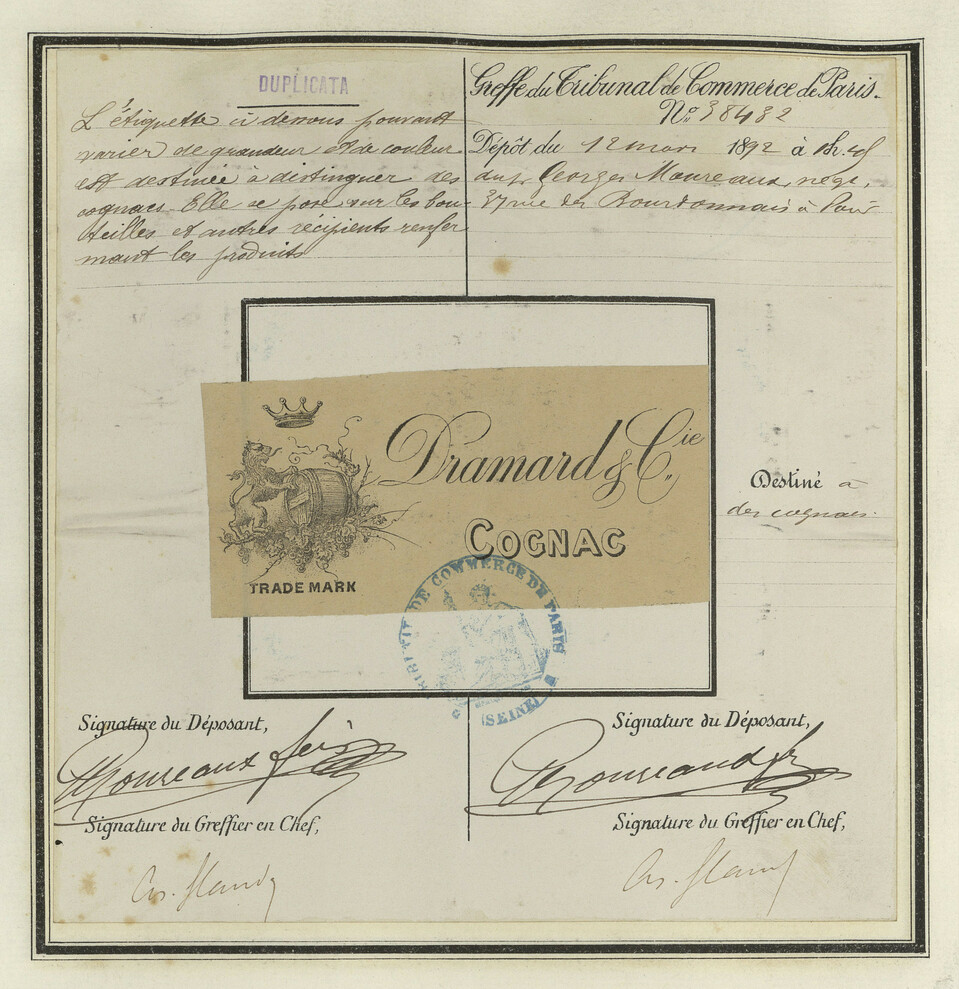 DUPLICATA
L'étiquette ci dessous pouvant
varier de grandeur et de couleur
est destinée à distinguer des
cognacs. Elle se pose sur les bou-
teilles et autres récipients renfer
mant les produits
Greffe du Tribunal de Commerce de Paris.
No. 38432
Dépôt du 12 mars 1892 à 1h.
Georges Moureaux, négt,
37 rue des Bourdonnais à Paris
Dramard & Cie
COGNAC
TRADE MARK
TRIBUNAL DE COMMERCE DE PARIS
(SEINE)
Destiné à
des cognacs.
Signature du Déposant,
GMoureaux
Signature du Greffier en Chef,
Signature du Déposant,
GMoureaux
Signature du Greffier en Chef,